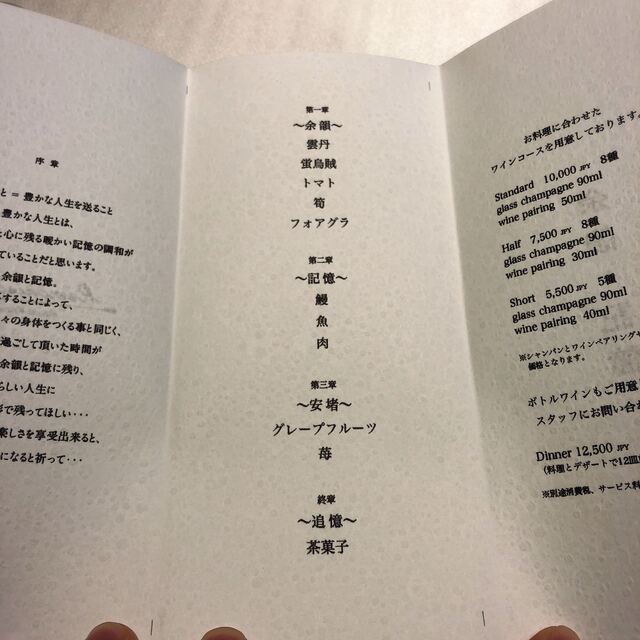 序章
と = 豊かな人生を送ること
豊かな人生とは、
心に残る暖かい記憶の調和が
ていることだと思います。
余韻と記憶。
することによって、
々の身体をつくる事と同じく、
過ごして頂いた時間が
余韻と記憶に残り、
らしい人生に
で残ってほしい・・・
楽しさを享受出来ると、
になると祈って・・・
第一章
～余韻～
雲丹
蛍烏賊
トマト
筍
フォアグラ
第二章
～記憶～
鰻
魚
肉
第三章
～安堵～
グレープフルーツ
苺
終章
～追憶～
茶菓子
お料理に合わせた
ワインコースを用意しております。
Standard 10,000 JPY 8種
glass champagne 90ml
wine pairing 50ml
Half 7,500 JPY 8種
glass champagne 90ml
wine pairing 30ml
Short 5,500 JPY 5種
glass champagne 90ml
wine pairing 40ml
※シャンパンとワインペアリング
価格となります。
ボトルワインもご用意
スタッフにお問い合わ
Dinner 12,500 JPY
(料理とデザートで12皿
※別途消費税、サービス料